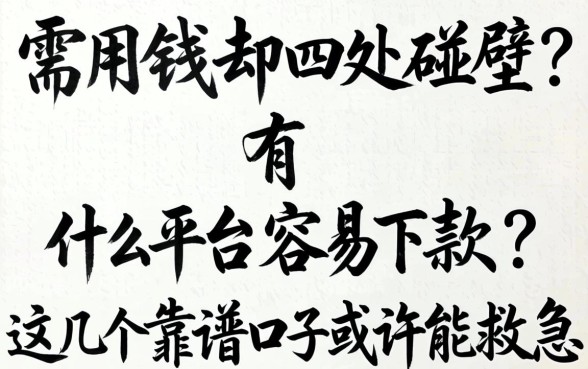 需用钱却四处碰壁？
有
什么平台容易下款？
这几个靠谱口子或许能救急